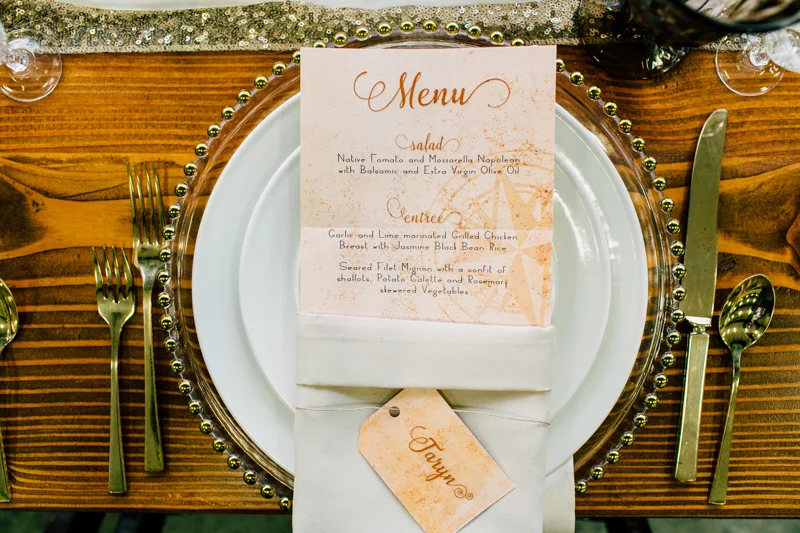 Menu
salad
Native Tomato and Mozzarella Napolean
with Balsamic and Extra Virgin Olive Oil
entree
Garlic and Lime marinated Grilled Chicken
Breast with Jasmine Black Bean Rice
Seared Filet Mignon with a confit of
shallots, Potato Galette and Rosemary
skewered Vegetables
Taryn